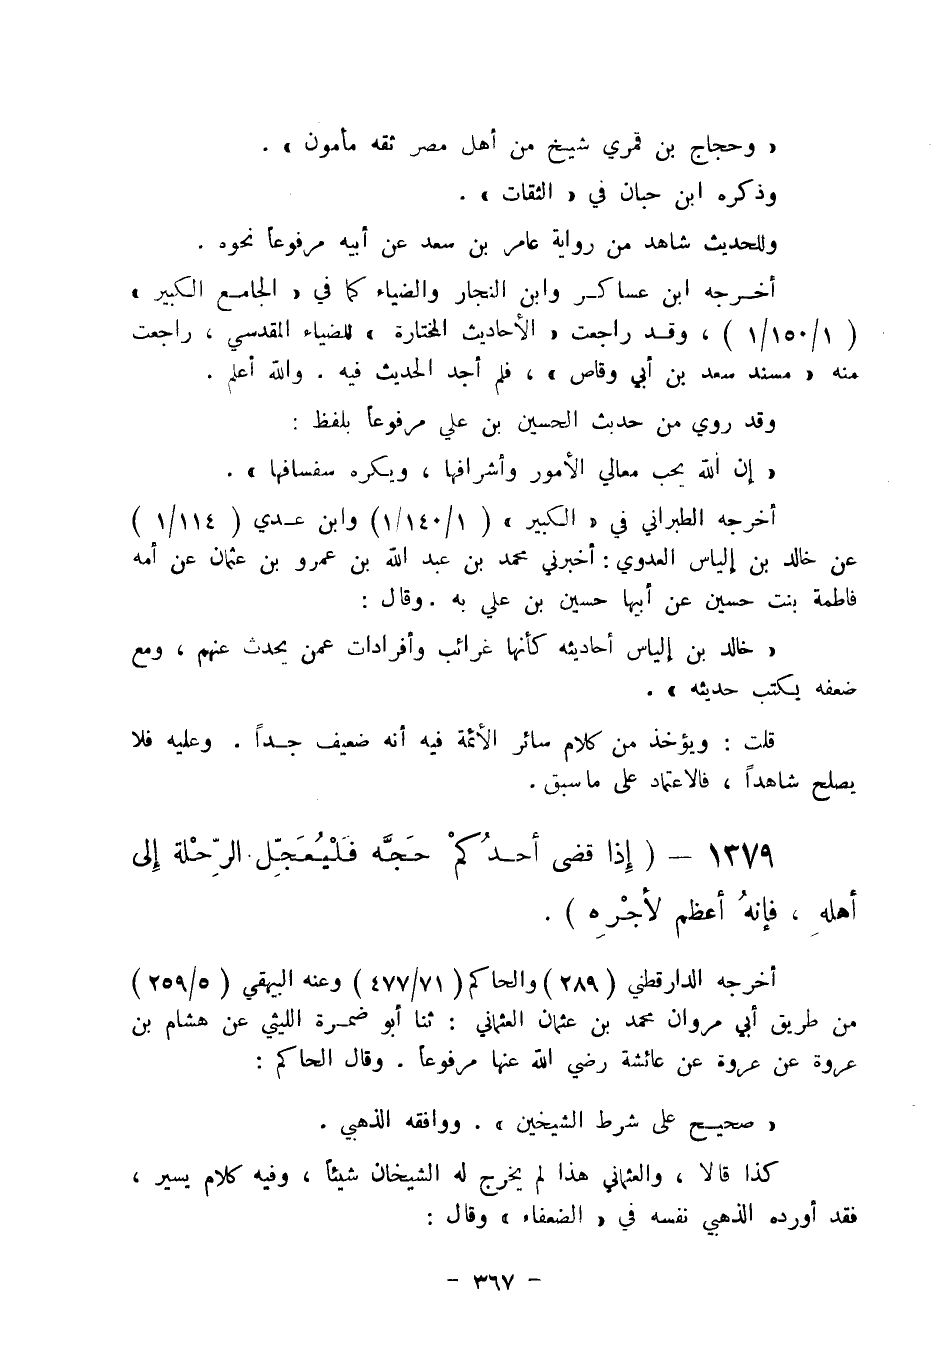 « وحجاج بن قمري شيخ من أهل مصر ثقه مأمون » .
وذكره ابن حبان في « الثقات » .
وللحديث شاهد من رواية عامر بن سعد عن أبيه مرفوعاً نحوه .
أخرجه ابن عساكر وابن النجار والضياء كما في « الجامع الكبير »
( ١/١٥٠/١ ) ، وقد راجعت « الأحاديث المختارة » للضياء المقدسي ، راجعت
منه « مسند سعد بن أبي وقاص » ، فلم أجد الحديث فيه . والله أعلم .
وقد روي من حديث الحسين بن علي مرفوعاً بلفظ :
« إن الله يحب معالي الأمور وأشرافها ، ويكره سفسافها » .
أخرجه الطبراني في « الكبير » ( ١/١٤٠/١) وابن عدي ( ١/١١٤ )
عن خالد بن إلياس العدوي : أخبرني محمد بن عبد الله بن عمرو بن عثمان عن أمه
فاطمة بنت حسين عن أبيها حسين بن علي به . وقال :
« خالد بن إلياس أحاديثه كأنها غرائب وأفرادات عمن يحدث عنهم ، ومع
ضعفه يكتب حديثه » .
قلت : ويؤخذ من كلام سائر الأئمة فيه أنه ضعيف جداً . وعليه فلا
يصلح شاهداً ، فالاعتماد على ما سبق .
١٣٧٩ – ( إذا قضى أحدُكمْ حَجَّه فَلْيُعَجِّل الرِّحْلة إلى
أهلهِ ، فإنهُ أعظم لأجْرِه ) .
أخرجه الدارقطني ( ٢٨٩ ) والحاكم ( ٤٧٧/٧١ ) وعنه البيهقي ( ٢٥٩/٥ )
من طريق أبي مروان محمد بن عثمان العثماني : ثنا أبو ضمرة الليثي عن هشام بن
عروة عن عروة عن عائشة رضي الله عنها مرفوعاً . وقال الحاكم :
« صحيح على شرط الشيخين » . ووافقه الذهبي .
كذا قالا ، والعثماني هذا لم يخرج له الشيخان شيئاً ، وفيه كلام يسير ،
فقد أورده الذهبي نفسه في « الضعفاء » وقال :
– ٣٦٧ –